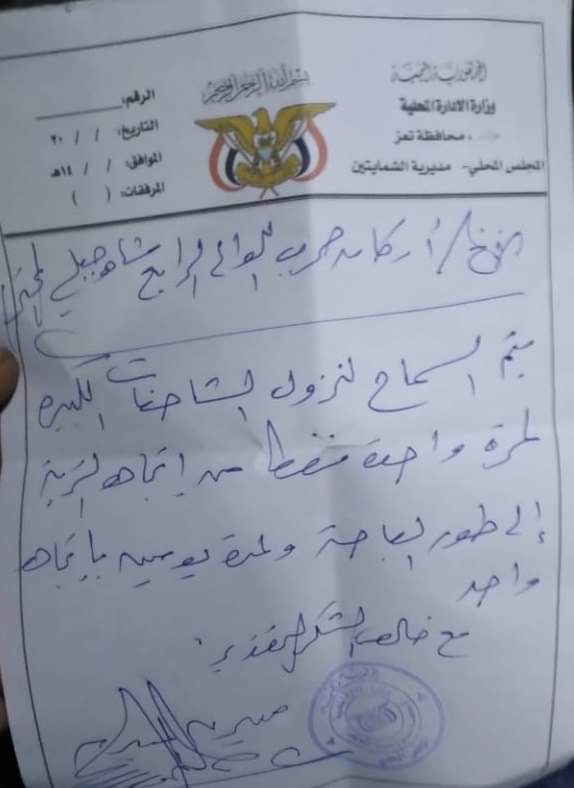 الجمهورية اليمنية
وزارة الادارة المحلية
محافظة تعز
المجلس المحلي - مديرية الشمايتين
بسم الله الرحمن الرحيم
الرقم:
التاريخ: / / ٢٠
الموافق: / / ١٤هـ
المرفقات: ( )
الأخ / أركان حرب اللواء الرابع مشاه جبلي المحترم
يتم السماح لنزول الشاحنات الكبيره
لمرة واحدة فقط من إتجاه التربة
إلى طور الباحة ولمدة يومين بإتجاه
واحد
مع خالص الشكر والتقدير